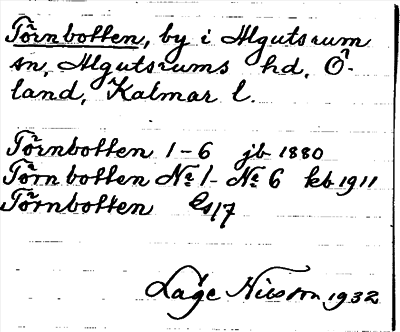 Törnbotten, by i Algutsrum
sn, Algutsrums hd, Ö-
land, Kalmar l.
Törnbotten 1-6 jb 1880
Törnbotten No 1- No 6 kb 1911
Törnbotten
Låge Nilsson 1932